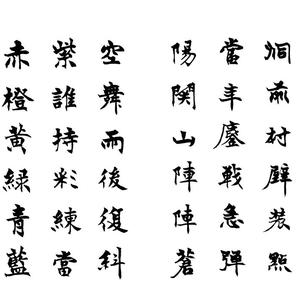 赤橙黄緑青藍
紫誰持彩練當
空舞雨後復斜
陽関山陣陣蒼
當年鏖戦急弾
洞前村壁装點